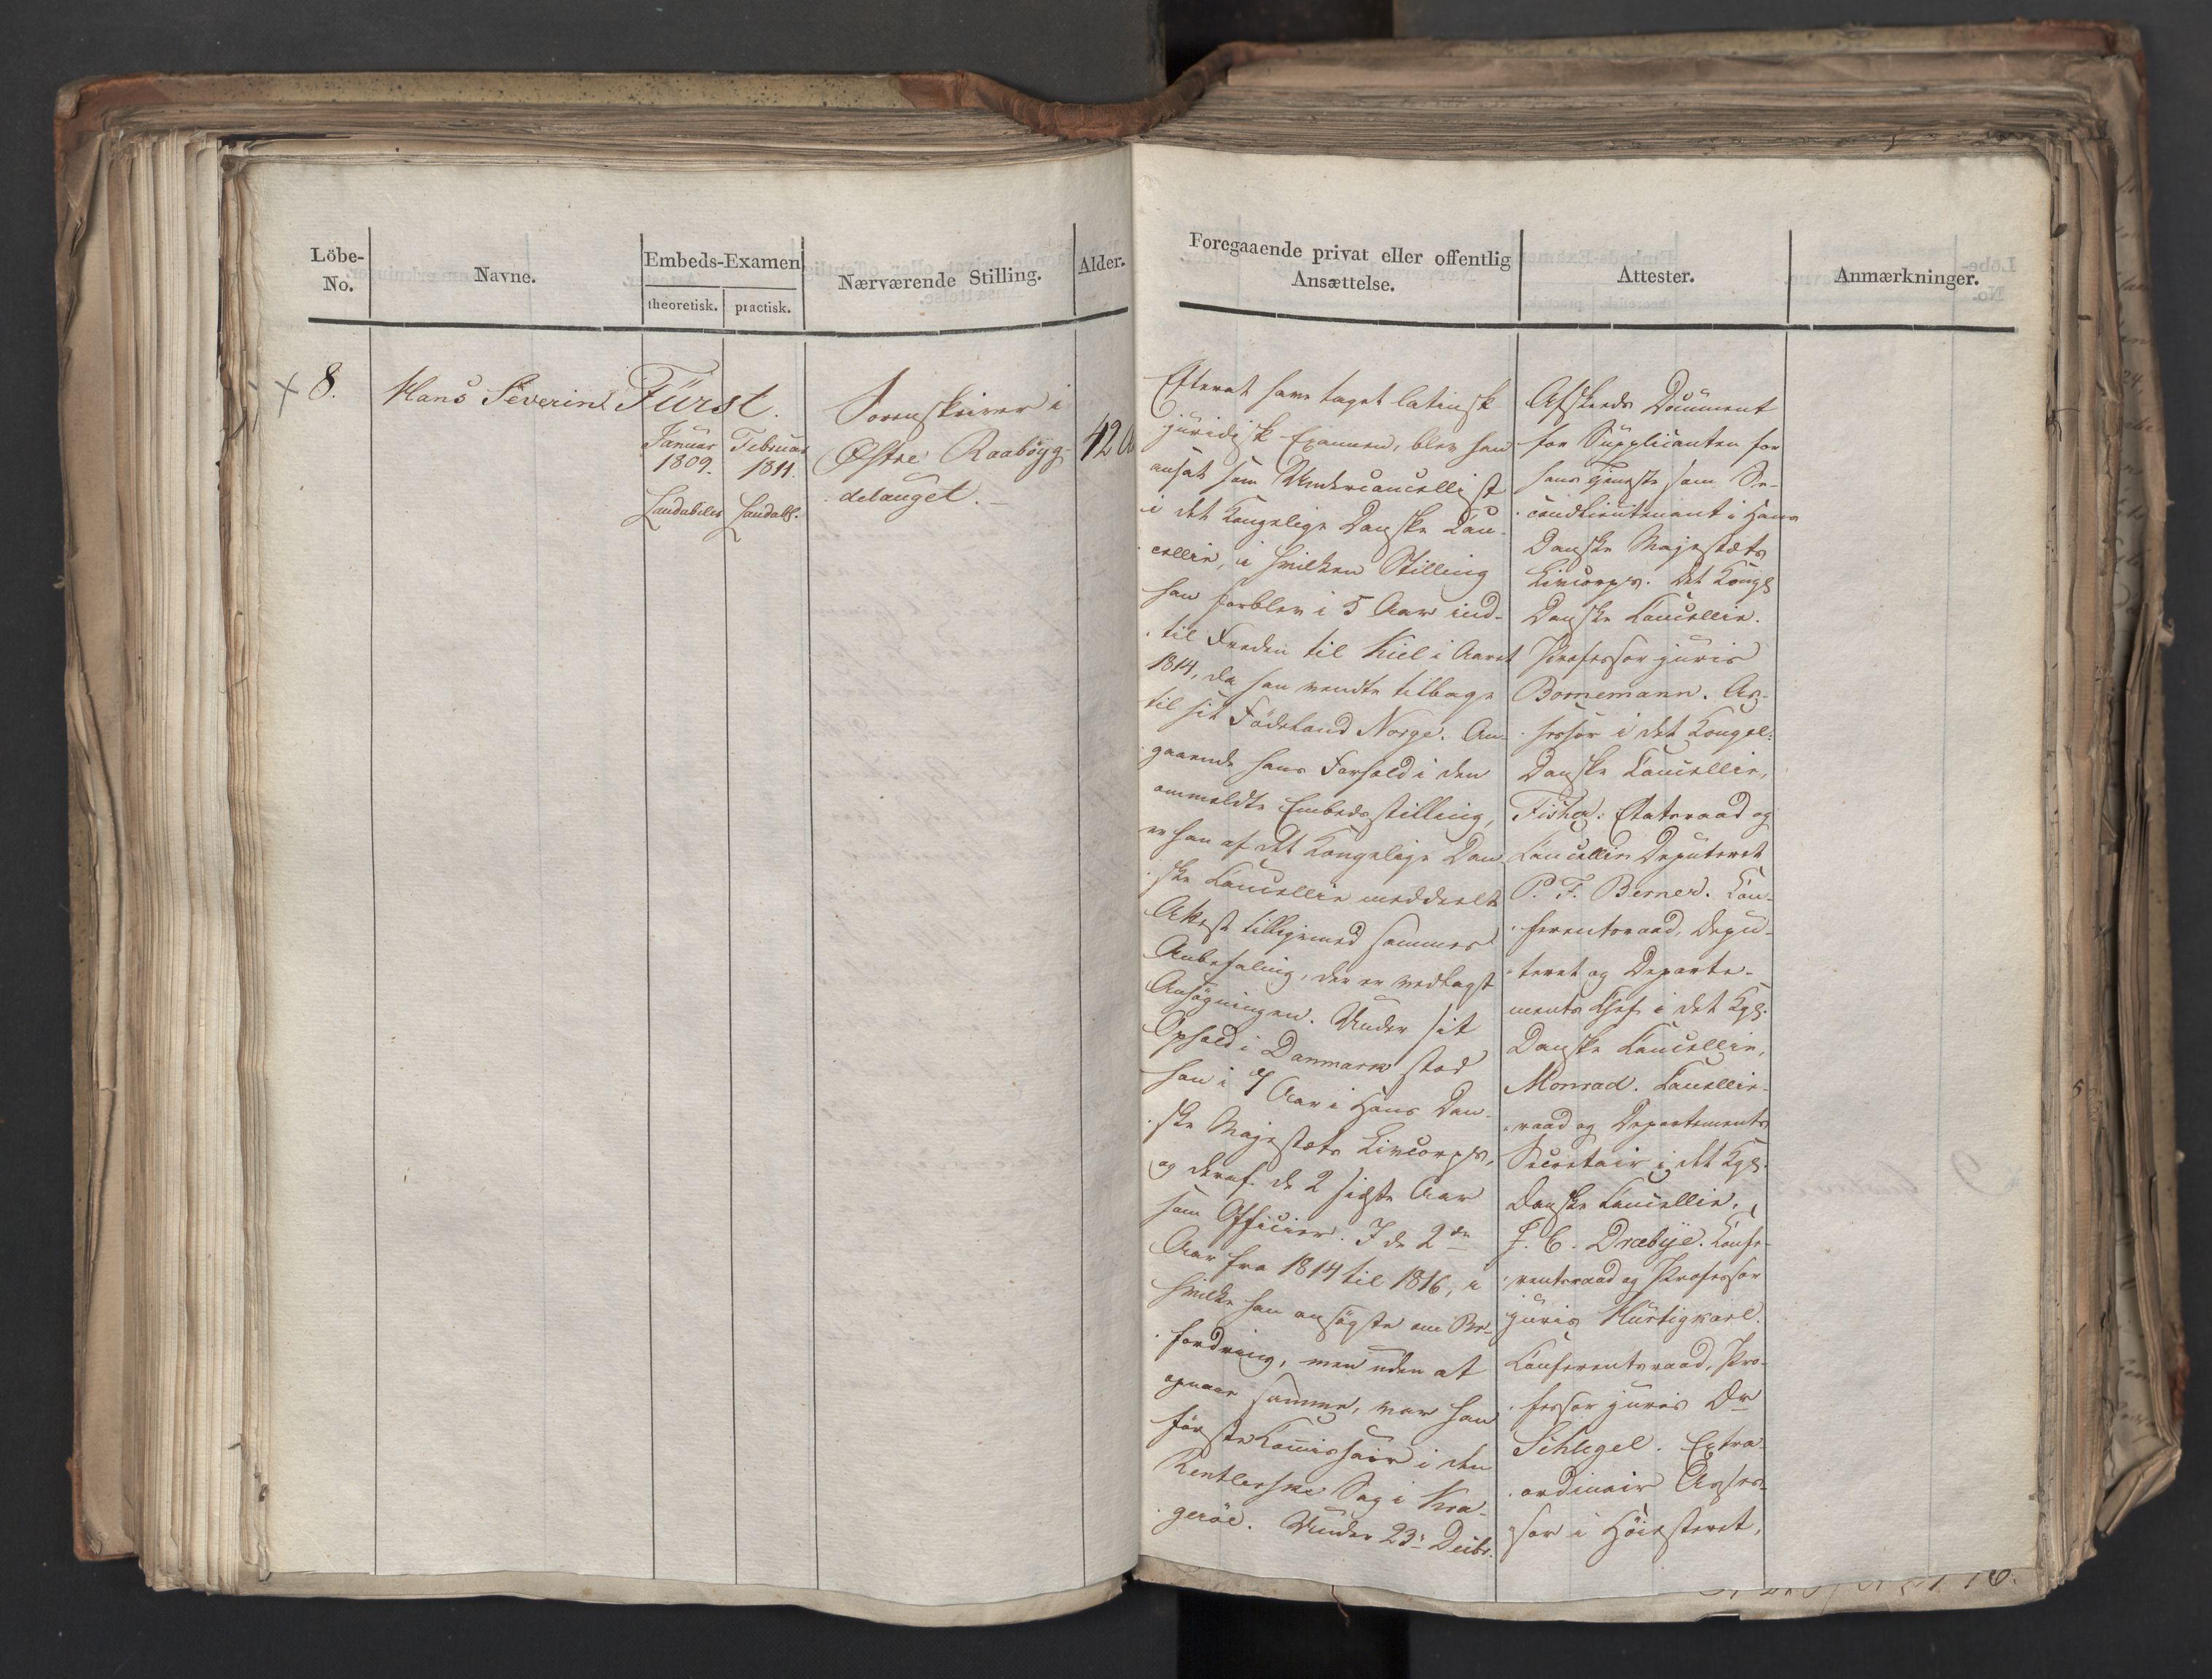 Löbe-
No.
Navne.
Embeds-Examen
theoretisk.
practisk.
Nærværende Stilling.
Alder.
8.
Hans Severin Fürst.
Januar
1809.
Laudabilis
Februar
1811.
Laudab.
Sorenskriver i
Østre Raaböyg-
delauget.
42 Aa
Foregaaende privat eller offentlig
Ansættelse.
Efterat have taget latinsk
juridisk Examen, blev han
ansat som Undercancellist
i det Kongelige Danske Can-
cellie, i hvilken Stilling
han forblev i 5 Aar ind-
til Freden til Kiel i Aaret
1814, da han vendte tilbage
til sit Födeland Norge. An-
gaaende hans Forhold i den
ommeldte Embedsstilling,
er han af det Kongelige Dan
ske Cancellie meddeelt
Attest tilligemed sammes
Anbefaling, der er vedlagt
Ansögningen. Under sit
Ophold i Danmark stod
han i 7 Aar i Hans Dan-
ske Majestæts Livcorps,
og deraf de 2 sidste Aar
som Officier. I de 2de
Aar fra 1814 til 1816, i
hvilke han ansögte om Be-
fordring, men uden at
opnaae samme, var han
förste Commissair i den
Sag i Kra-
geröe. Under 23: Decbr.
Attester.
Afskeds Document
for Supplicanten for
hans Tjeneste som Se-
condlieutenant i Hans
Danske Majestæts
Livcorps. Det Kongl.
Danske Cancellie.
Professor juris
Bornemann. As-
sessor i det Kongel:
Danske Cancellie,
Etatsraad og
Cancellie Deputeret
P. F. Berner. Con-
ferentsraad, Depu-
teret og Departe-
ments Chef i det Kgl.
Danske Cancellie,
Monrad. Cancellie-
raad og Departements
Secretair i det Kgl.
Danske Cancellie,
C. Dræbye. Confe-
rentsraad og Professor
juris Hurtigkarl.
Conferentsraad, Pro-
fessor juris Dr
Schlegel. Extra-
ordinair Asses-
sor i Höiesteret,
Anmærkninger.